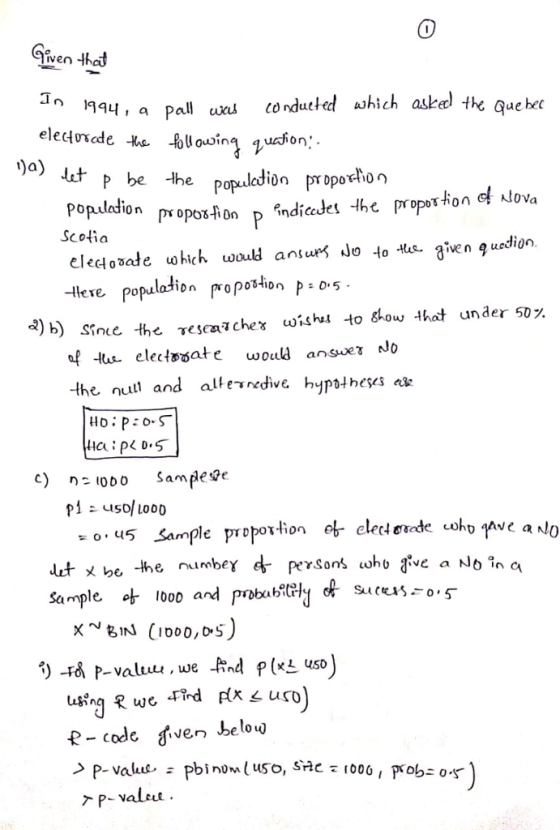 ①
Given that
In 1994, a pall was conducted which asked the Quebec
electorade the following quation:.
1)a) let p be the population proportion
population proportion p indicates the proportion of Nova
Scotia
electorate which would answs No to the given quation.
Here population proportion p = 0.5.
2) b) Since the researcher wishes to show that under 50%
of the electorate would answer NO
the null and alternative hypotheses are
H0 : p = 0.5
Ha : p < 0.5
c) n = 1000 Sample size
p1 = 450/1000
= 0.45 Sample proportion of electorate who gave a NO
let x be the number of persons who give a NO in a
Sample of 1000 and probability of sucess = 0.5
X ~ BIN (1000, 0.5)
i) For p-value, we find p(x ≤ 450)
using R we find p(X ≤ 450)
R - code given below
> p-value = pbinom(450, size = 1000, prob = 0.5)
> p-value.